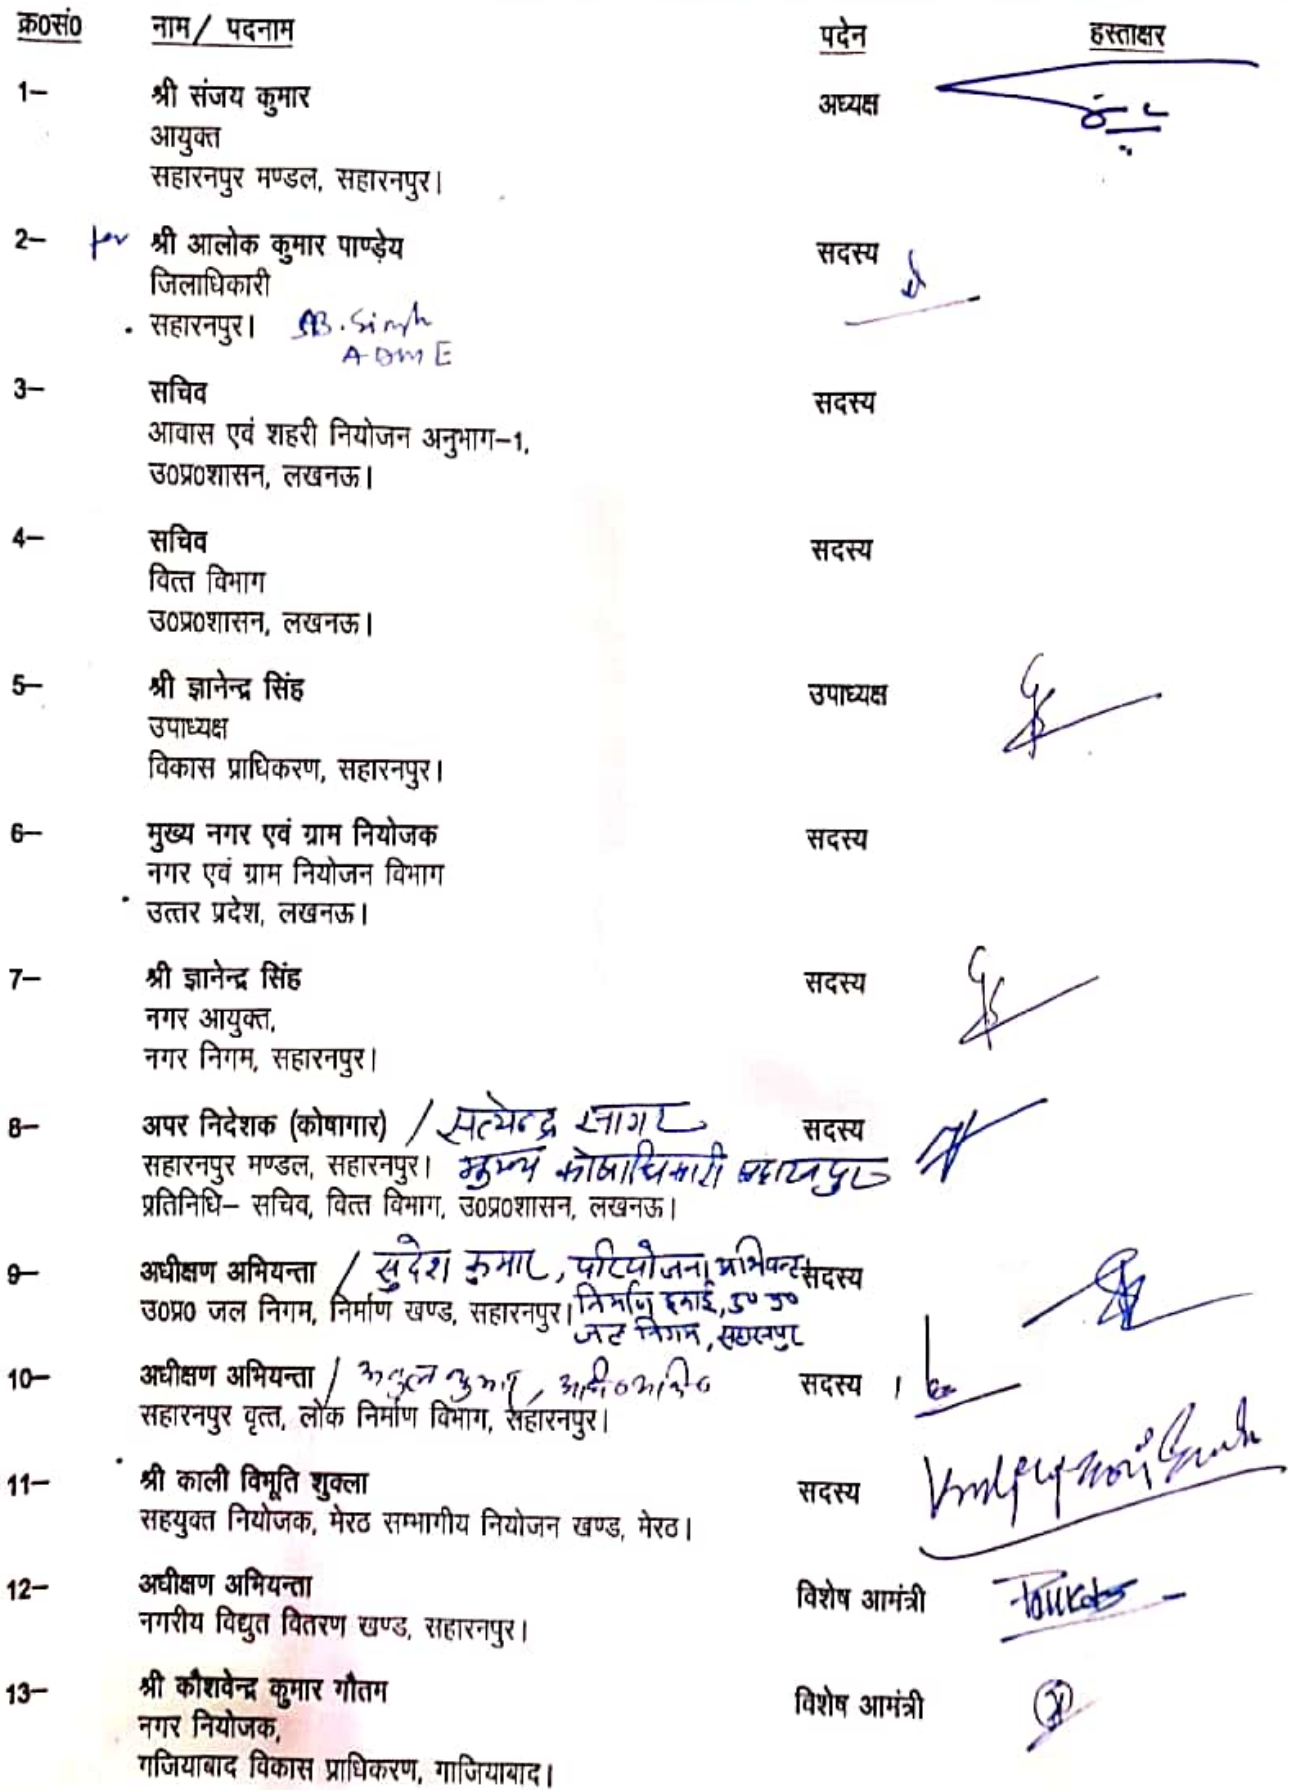 क्र0सं0 नाम/ पदनाम पदेन हस्ताक्षर
1– श्री संजय कुमार अध्यक्ष
आयुक्त
सहारनपुर मण्डल, सहारनपुर।
2– for श्री आलोक कुमार पाण्ड़ेय सदस्य
जिलाधिकारी
सहारनपुर। SB. Singh
ADM E
3– सचिव सदस्य
आवास एवं शहरी नियोजन अनुभाग–1,
उ0प्र0शासन, लखनऊ।
4– सचिव सदस्य
वित्त विभाग
उ0प्र0शासन, लखनऊ।
5– श्री ज्ञानेन्द्र सिंह उपाध्यक्ष
उपाध्यक्ष
विकास प्राधिकरण, सहारनपुर।
6– मुख्य नगर एवं ग्राम नियोजक सदस्य
नगर एवं ग्राम नियोजन विभाग
उत्तर प्रदेश, लखनऊ।
7– श्री ज्ञानेन्द्र सिंह सदस्य
नगर आयुक्त,
नगर निगम, सहारनपुर।
8– अपर निदेशक (कोषागार) / सत्येन्द्र सागर सदस्य
सहारनपुर मण्डल, सहारनपुर। मुख्य कोषाधिकारी सहारनपुर
प्रतिनिधि– सचिव, वित्त विभाग, उ0प्र0शासन, लखनऊ।
9– अधीक्षण अभियन्ता / सुदेश कुमार, परियोजना अभियन्ता सदस्य
उ0प्र0 जल निगम, निर्माण खण्ड, सहारनपुर। निर्माण इकाई, उ० प्र०
जल निगम, सहारनपुर
10– अधीक्षण अभियन्ता / अतुल कुमार, अधि०अभि० सदस्य
सहारनपुर वृत्त, लोक निर्माण विभाग, सहारनपुर।
11– श्री काली विमूति शुक्ला सदस्य
सहयुक्त नियोजक, मेरठ सम्भागीय नियोजन खण्ड, मेरठ।
12– अधीक्षण अभियन्ता विशेष आमंत्री
नगरीय विद्युत वितरण खण्ड, सहारनपुर।
13– श्री कौशवेन्द्र कुमार गौतम विशेष आमंत्री
नगर नियोजक,
गजियाबाद विकास प्राधिकरण, गाजियाबाद।